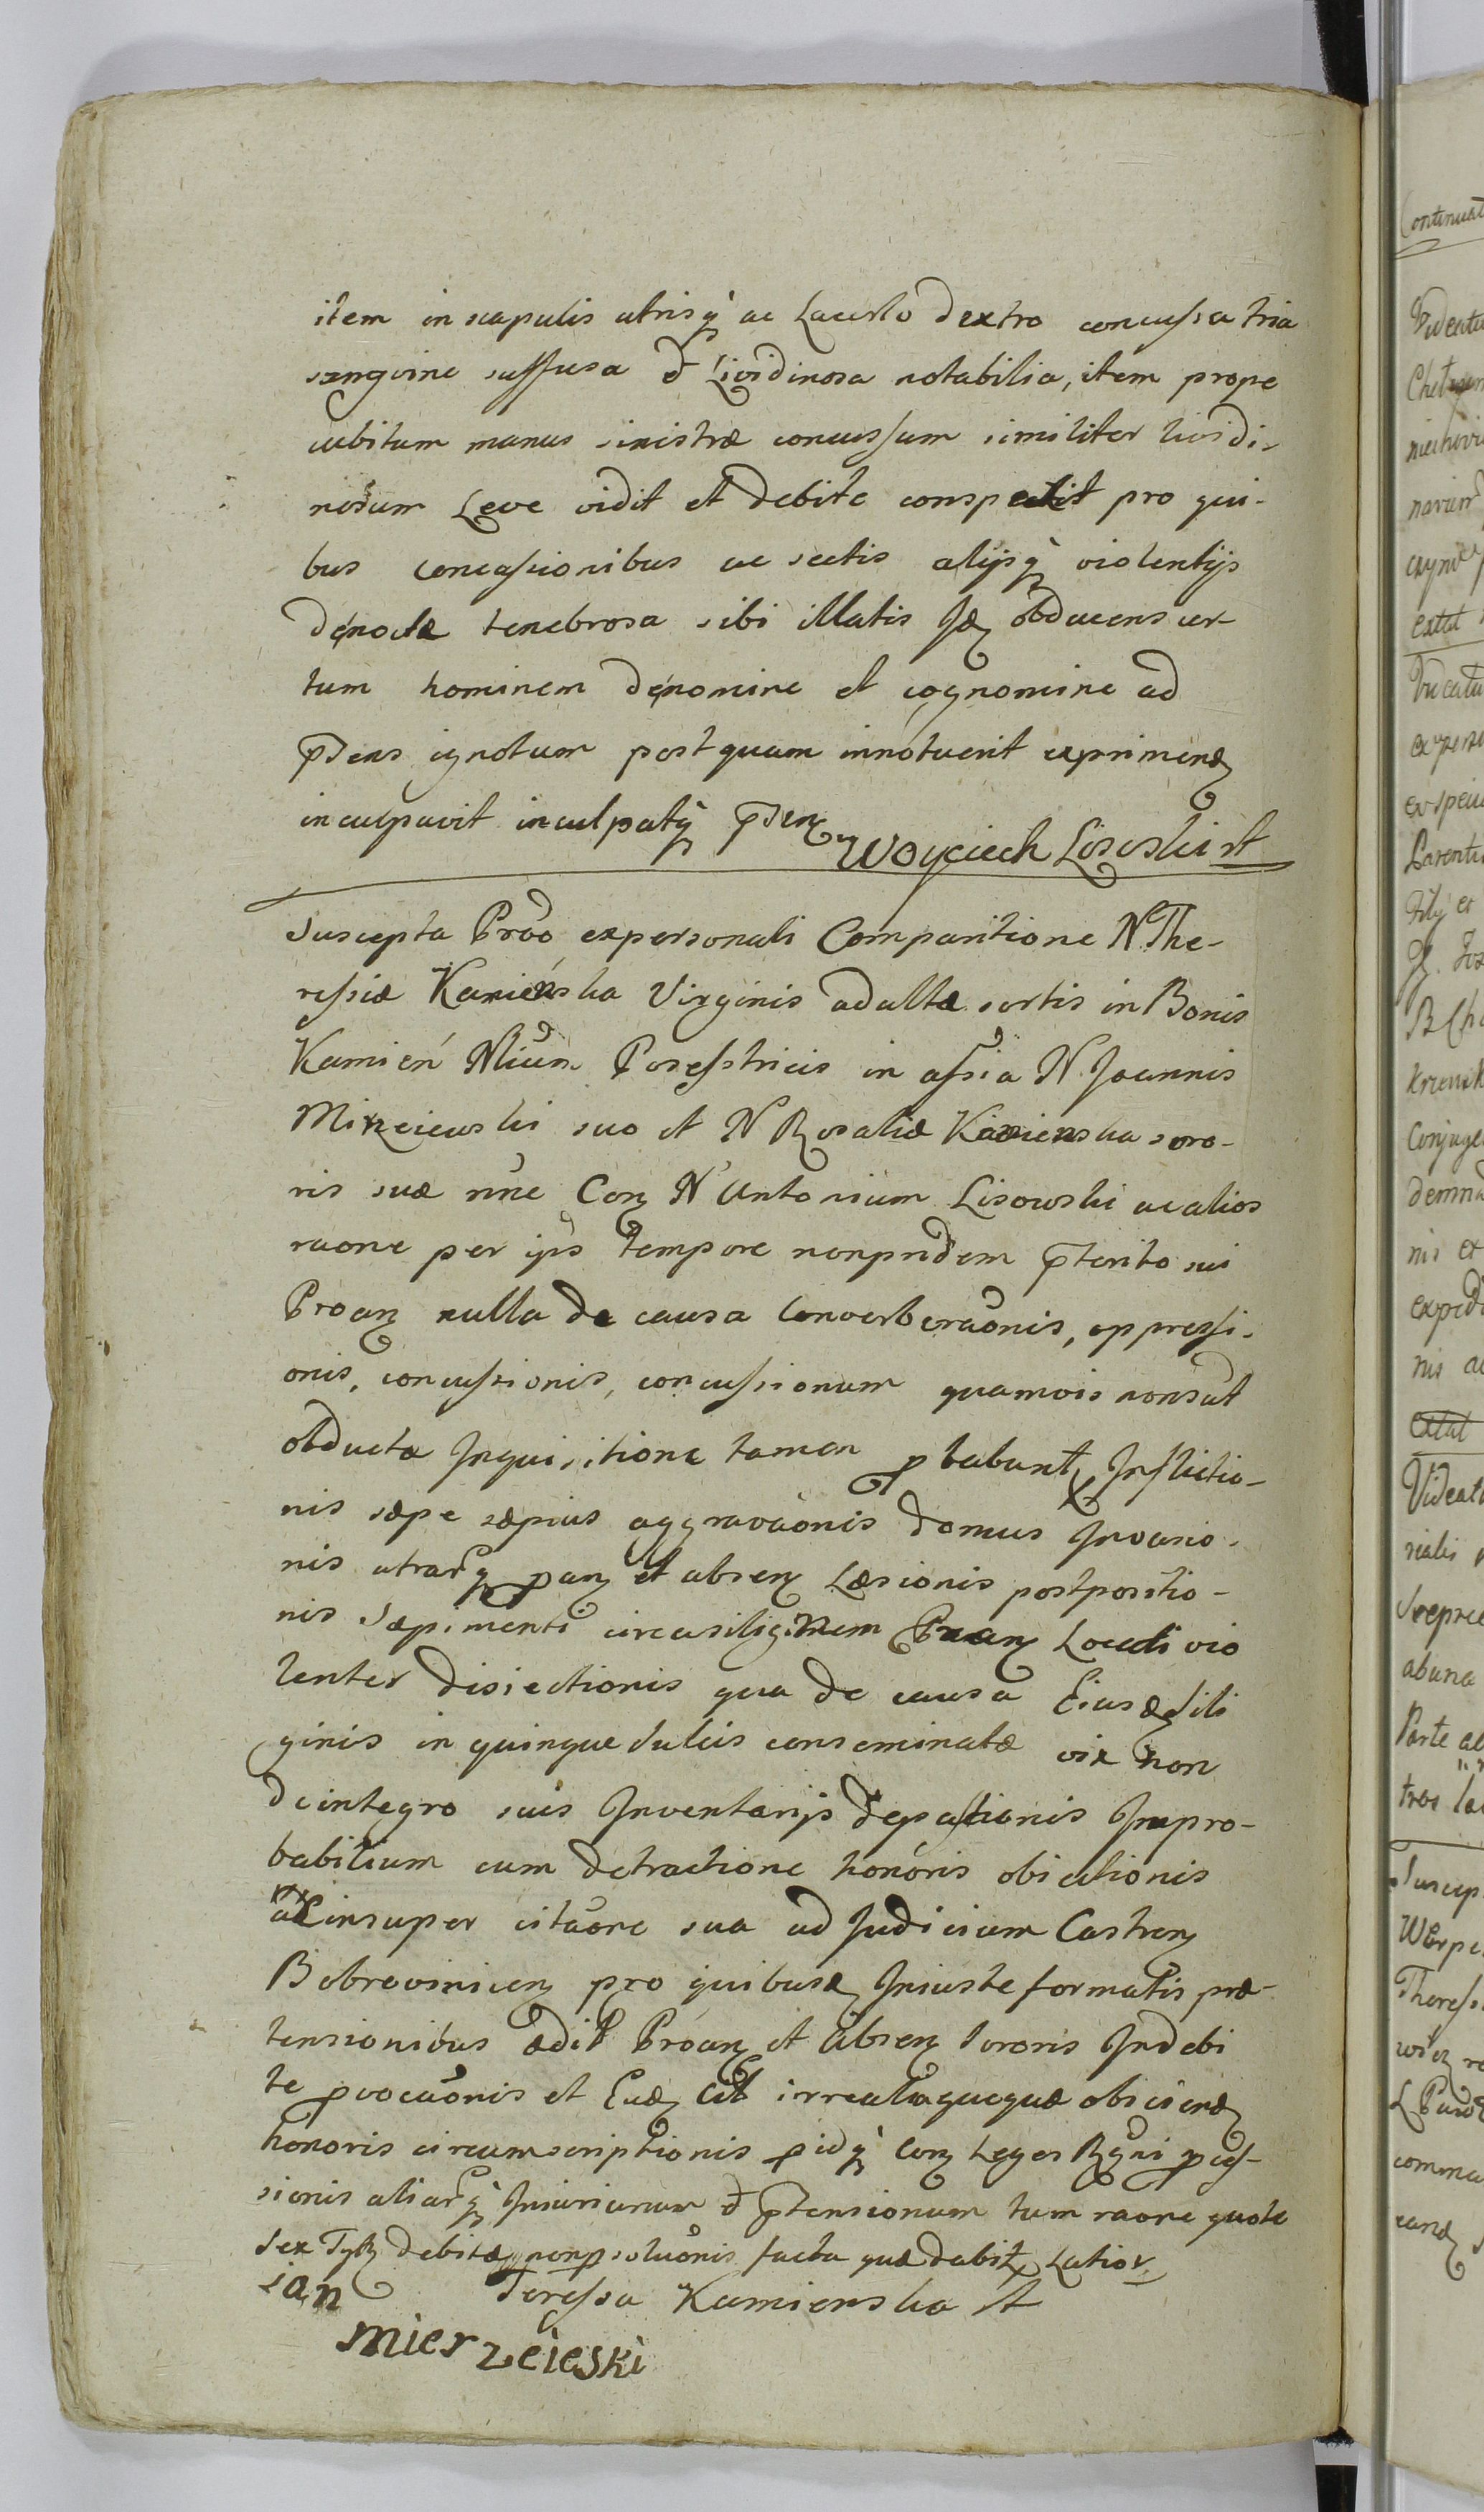 item in scapulis utrisq ac Lacerto dextro concussa tria
sangvine suffusa et Lividinosa notabilia, item prope
cubitum manus sinistræ concussum similiter lividi-
nosum Leve vidit et debite conspexit pro qui-
bus concussionibus ac sectis alijsq violentijs
denocte tenebrosa sibi illatis Id obducens cer-
tum hominem denomine et cognomine ad
pns ignotum postquam innotuerit exprimend
inculpavit inculpatq pnn
Woyciech Lisoski mp
Suscepta Prõ expersonali Comparitione N. The-
ressiæ Kamieńska Virginis adultæ sortis in Bonis
Kamień Nlium Possestricis in assia N. Joannis
Mirzeiewski suo et N Rosaliæ Kamienska soro-
ris suæ nne Con N Antonium Lisowski ac alios
raone per ipso tempore nonpridem pterito sui
Proan nulla de causa Converberaonis, oppressi-
onis, concussionis, concussionum quamvis nonsut
obducta Inquisitione tamen pbabunt Inflictio-
nis sæpe sæpius aggravaonis domus Invasio-
nis utrarq pan et absen Læsionis postpositio-
nis Sæpimenti circasiliginem Proan Locati vio
lenter disiectionis qua de causa Eiusd sili
ginis in quinque Sulcis conseminatæ vix non
deintegro suis Inventarijs depastionis Impro-
babilium cum detractione honoris obiectionis
ac insuper citaone sua ad Judicium Castren
Bobrovnicen pro quibusd Iniuste formatis præ-
tensionibus ædit Proan et absen Sororis Indebi
te pvocaonis et Eud Cit irrealiaquæquæ obsciend
honoris circumscriptionis pidq Con Leges Regni pces-
sionis aliarq Iniuriarum et ptensionum tum raone quota
Sex Tyl debitæ nonpsolutionis facta quæ dabit Latior
ian Teressa Kamienska mp
mierzeieski